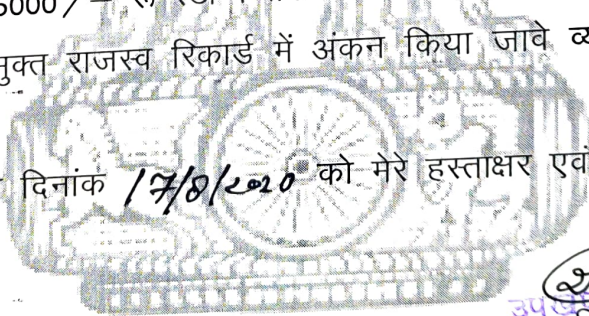 5000/-
मुक्त राजस्व रिकार्ड में अंकन किया जावे
दिनांक 17/8/2020 को मेरे हस्ताक्षर एवं